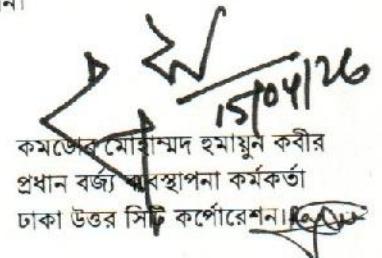 15/04/26
কমডোর মোহাম্মদ হুমায়ুন কবীর
প্রধান বর্জ্য ব্যবস্থাপনা কর্মকর্তা
ঢাকা উত্তর সিটি কর্পোরেশন।